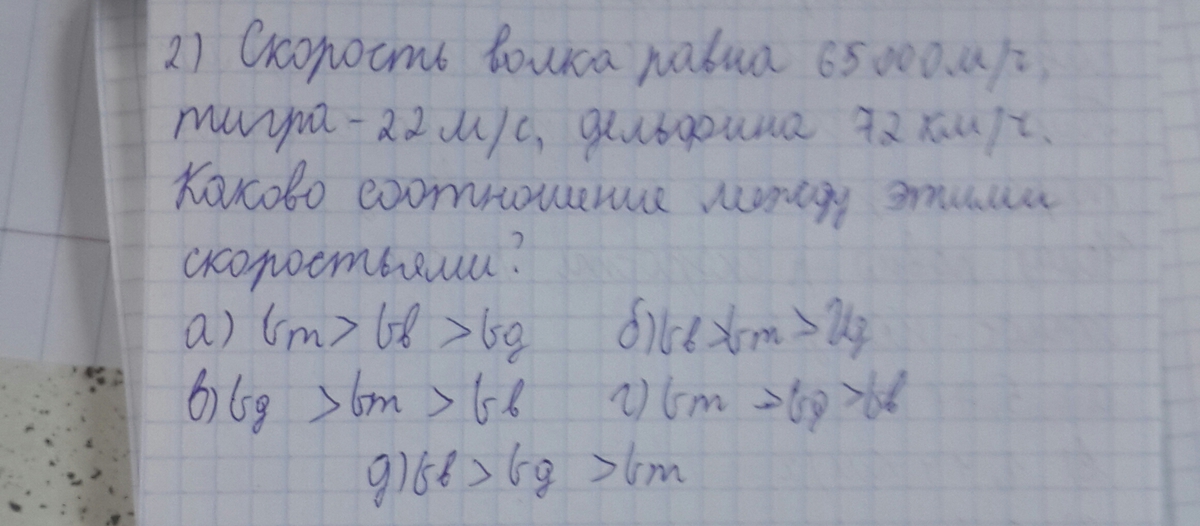 2) Скорость волка равна 65000м/ч,
тигра - 22 м/с, дельфина 72 км/ч.
Каково соотношение между этими
скоростьями?
а) υт > υв > υд б) υв > υт > υд
в) υд > υт > υв г) υт > υд > υв
д) υв > υд > υт